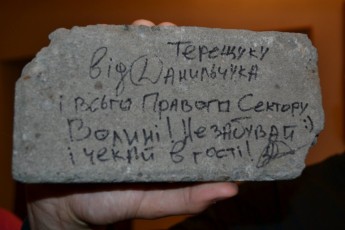 Терещуку
від Данильчука
і всього Правого Сектору
Волині! Незабувай :)
і чекай в гості!